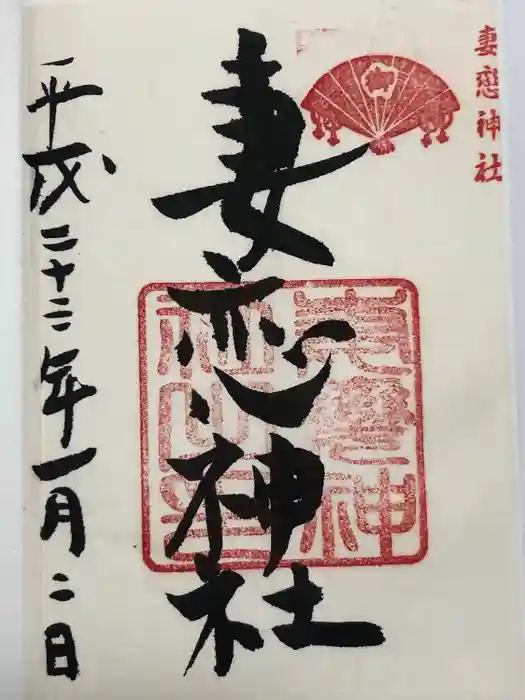 妻恋神社
妻恋神社
平成二十二年一月二日
妻戀神社之印